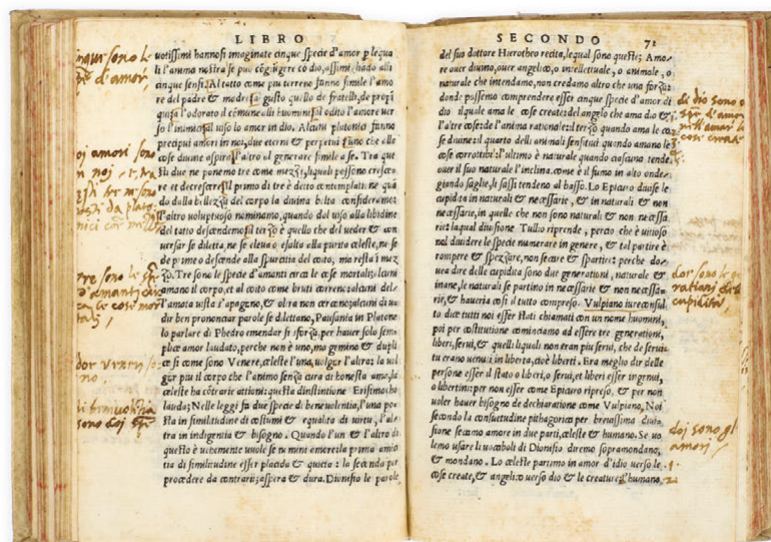 LIBRO
votissimi hannosi imaginate cinque specie d'amor p lequa
li l'anima nostra se può cõgiugere co dio, assimigliadoli alli
cinque sensi. Al tatto come piu terreno fanno simile l'amo
re del padre & madre: al gusto quello de fratelli, de propi
qui: a l'odorato il cõmune alli huomini: al odito l'amore uer
so l'inimici: al uiso lo amor in dio. Alcuni platonici fanno
precipui amori in noi, due eterni & perpetui: l'uno che alle
cose diuine aspira: l'altro al generare simile a se. Tra que
sti due ne ponemo tre come mezzi, liquali possono cresce
re et decrescere: il primo di tre è detto contemplati. ne quã
do dalla bellezza del corpo la diuina beltà consideramo:
l'altro voluptuoso nominamo, quando dal uiso alla libidine
del tatto descendemo: il terzo è quello che del veder & con
uersar se diletta, ne se eleua o esalta alla purità cœleste, ne se
de primo descende alla spurcitia del coito, ma resta i mez
zo. Tre sono le specie d'amanti circa le cose mortali: alcuni
amano il corpo, et al coito come bruti correno: alcuni del
l'amata uista s'apagano, & oltra non cercano: alcuni di u
dir ben prononciar parole se dilettano, Pausania in Platone
lo parlare di Phedro emendar si sforza, per hauer solo sem
plice amor laudato, perche non è uno, ma gemino & dupli
ce si come sono Venere, cœleste l'una, volgar l'altra: la vol
gar piu il corpo che l'animo senza cura di honesta ama, la
cœleste fa cõtrarie ationi: questa distintione Erisimaco
lauda: Nelle leggi fa due specie di beneuolentia, l'una po
sta in similitudine di costumi & equalita di uirtu, l'al
tra in indigentia & bisogno. Quando l'un & l'altro di
questi è uehemente vuole se nomini amore: la prima ami
tia di similitudine esser placida & quieta: la seconda per
procedere da contrarii: aspera & dura. Dionisio le parole
cinque sono le
spe d'amori
doi amori sono
in noi
Tre sono le spe
d'amanti circa
le cose mor
tali
dor Veneri so
no
di beniuolentia
sono doi spe
SECONDO
71
del suo dottore Hierotheo recita, lequal sono queste; Amo
re ouer diuino, ouer angelico, o intellectuale, o animale, o
naturale che intendamo, non credamo altro che una sforza
donde possemo comprendere esser cinque specie d'amor di
dio ilquale ama le cose create: del angelo che ama dio &
l'altre cose: de l'anima rationale: il terzo quando ama le co
se diuine: il quarto delli animali sensitiui quando amano le
cose corrottibili: l'ultimo è naturale quando ciascuna tende
ouer il suo naturale l'inclina, come è il fumo in alto onde
giando saglie, le sassi tendeno al basso. Lo Epicuro diuise le
cupidita in naturali & necessarie, & in naturali & non
necessarie, in quelle che non sono naturali & non necessa
rie: laqual diuisione Tullio riprende, percio che è uitioso
nel diuidere le specie numerare in genere, & tal partire è
rompere & spezzare, non secare & spartire: perche do
uea dire delle cupidita sono due generationi, naturale &
inane, le naturali se partino in necessarie & non necessa
rie, & haueria cosi il tutto compreso. Vulpiano iureconsul
to dice tutti noi esser stati chiamati con un nome huomini,
poi per costitutione cominciamo ad essere tre generationi,
liberi, serui, & quelli liquali non eran piu serui, che de serui
tu erano venuti in liberta, cioè liberti. Era meglio dir delle
persone esser il stato o liberi, o serui, et liberi esser ingenui,
o libertini: per non esser come Epicuro ripreso, & per non
uoler hauer bisogno de dechiaratione come Vulpiano, Noi
secondo la consuetudine pithagorica per breuissima diui
sione secamo amore in due parti, cœleste & humano. Se uo
lemo usare li uocaboli di Dionisio diremo sopramondano,
& mondano. Lo cœleste partimo in amor d'idio uerso le
cose create, & angelico uerso dio & le creature: l'humano,
di dio sono
spe d'amor
nell'amar le
cose create
dor sono le ge
nerationi delle
cupidita
doi sono gl
amori
1.
2.